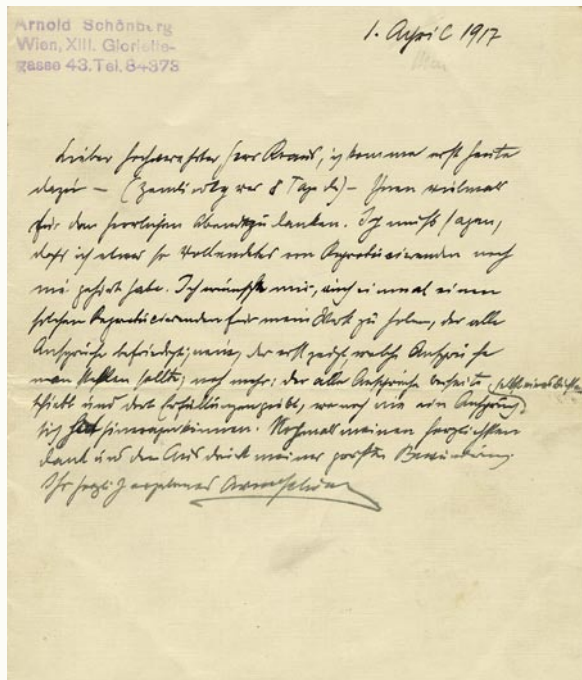 Arnold Schönberg
Wien, XIII. Gloriette-
gasse 43. Tel. 84373
1. April 1917
Wien
Lieber hochverehrter Herr Kraus, ich komme erst heute
dazu – (Zemlinsky war 8 Tage da) – Ihnen vielmals
für den herrlichen Abend zu danken. Ich muß sagen,
daß ich etwas so Vollendetes von Reproducierenden noch
nie gehört habe. Ich wünschte mir, auch einmal einen
solchen Reproducierenden für mein Werk zu haben, der alle
Ansprüche befriedigt; nein, der erst zeigt welche Ansprüche
man stellen sollte; noch mehr: der alle Ansprüche beiseite
schiebt und dort Erfüllungen gibt, wo noch nie ein Anspruch
sich hat hinwagen können. Nochmals meinen herzlichsten
Dank und den Ausdruck meiner größten Bewunderung.
Ihr herzlich ergebener Arnold Schönberg